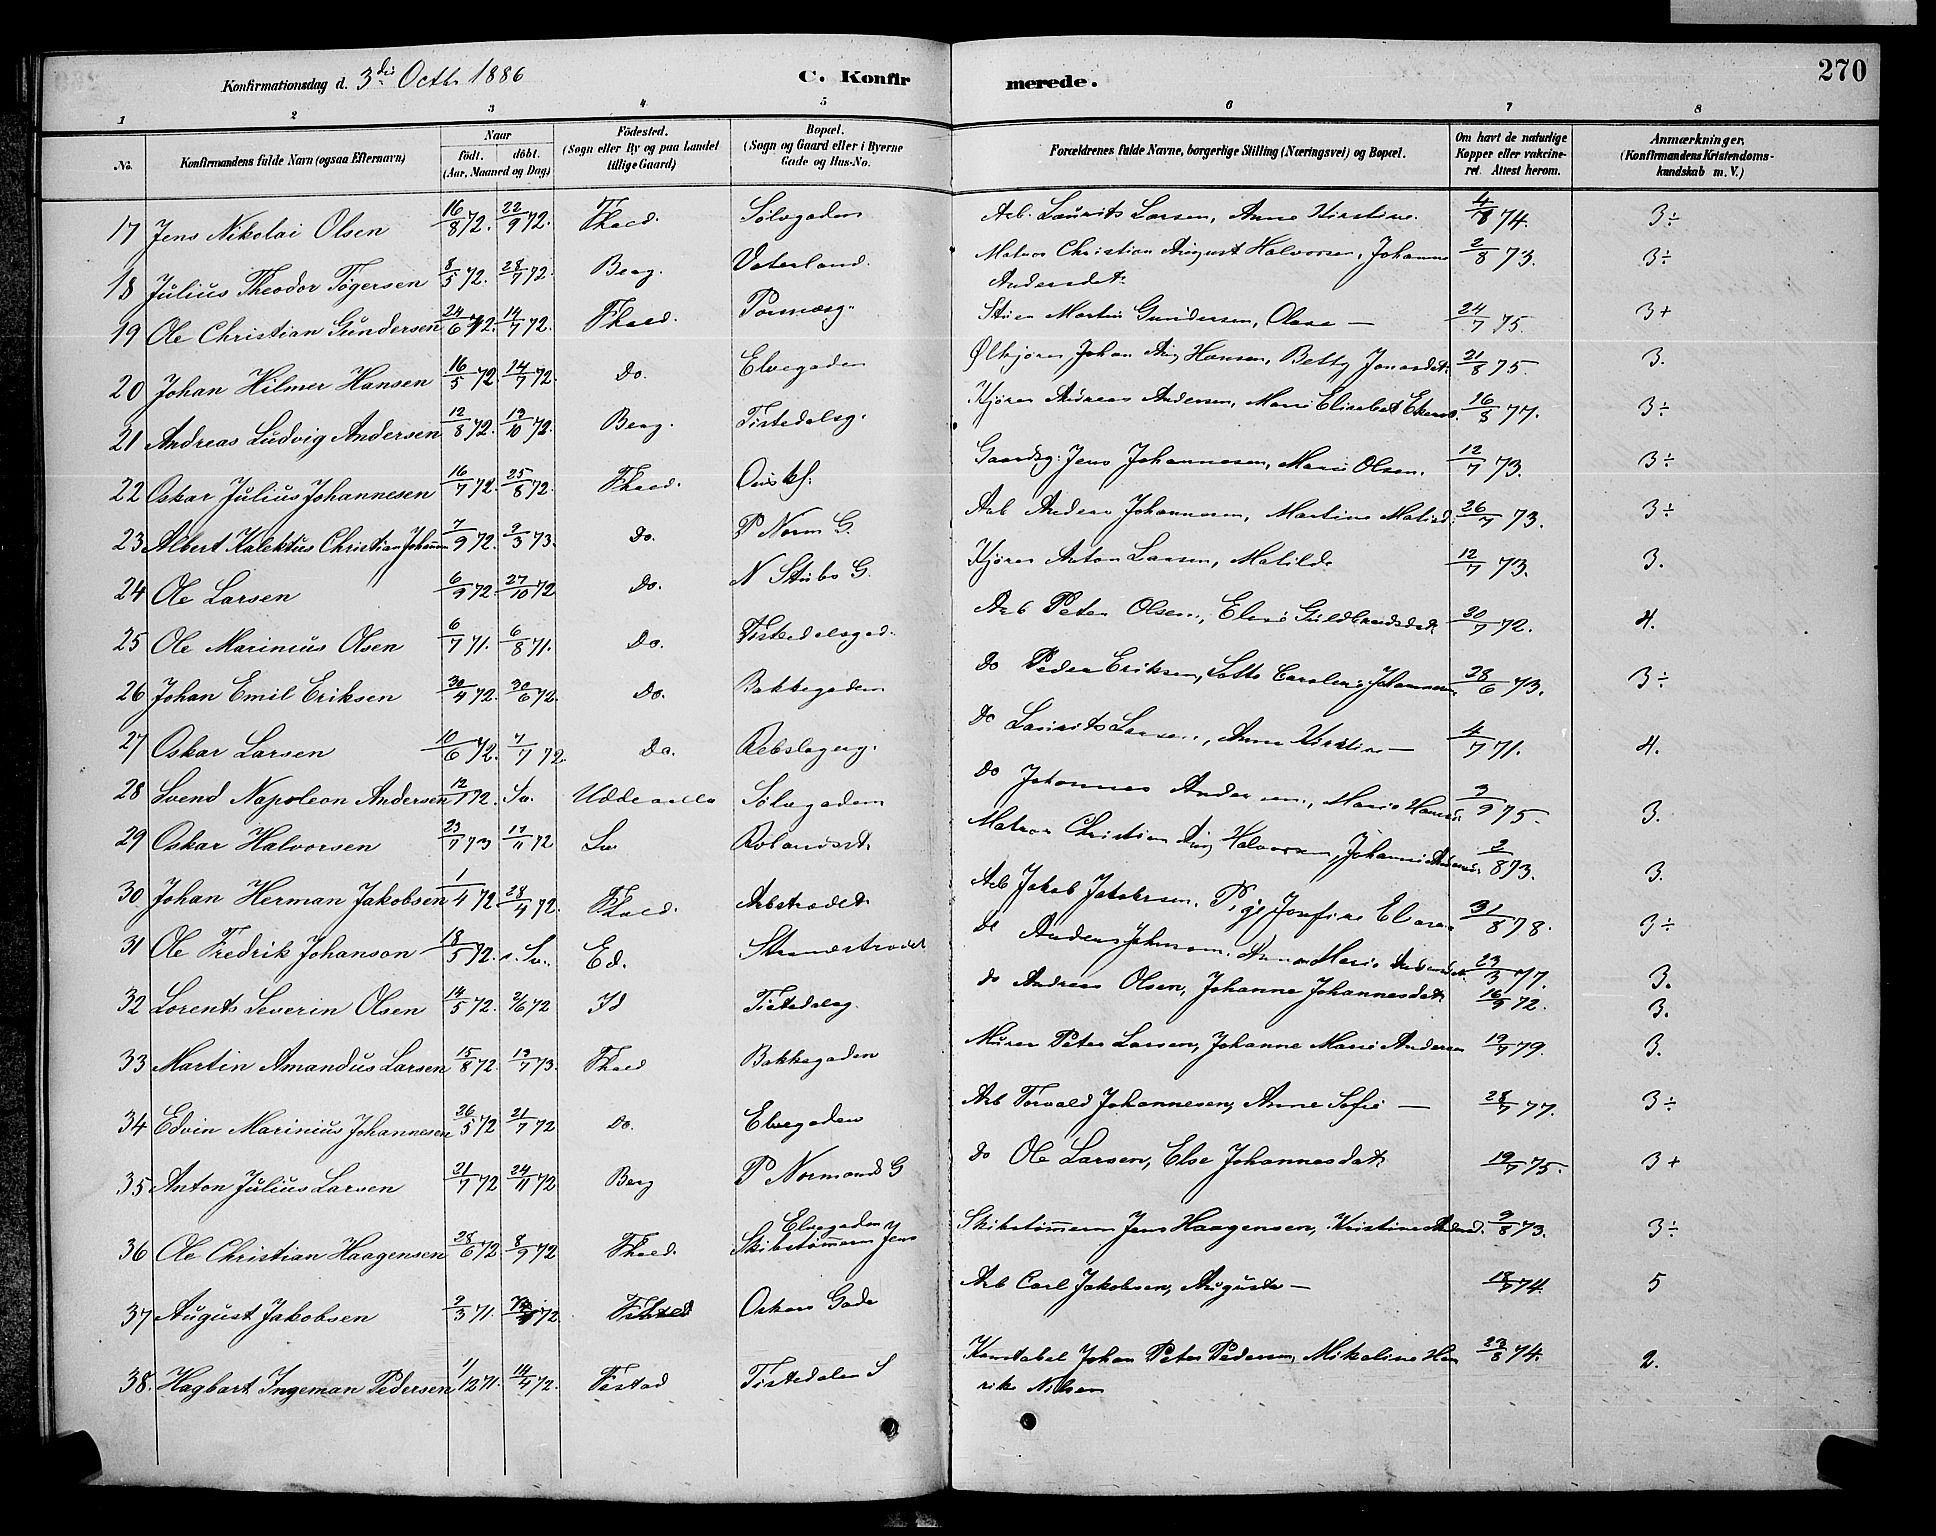 Konfirmationsdag d. 3die Octb. 1886 C. Konfirmerede. 270
1 2 3 4 5 6 7 8
No. Konfirmandens fulde Navn (ogsaa Efternavn) Naar født. døbt. (Aar, Maaned og Dag) Fødested. (Sogn eller By og paa Landet tillige Gaard) Bopæl. (Sogn og Gaard eller i Byerne Gade og Hus-No. Forældrenes fulde Navne, borgerlige Stilling (Næringsvei) og Bopæl. Om havt de naturlige Kopper eller vakcineret. Attest herom. Anmærkninger. (Konfirmandens Kristendomskundskab m. V.)
17 Jens Nikolai Olsen 16/8 72. 22/9 72. Fhald. Sølvgaden Arb. Laurits Larsen, Anne Kirstine. 4/8 74. 3÷
18 Julius Theodor Tøgersen 8/5 72. 28/7 72. Berg. Vaterland. Matros Christian August Halvorsen, Johanne Andersdt. 2/8 73. 3÷
19 Ole Christian Gundersen 24/6 72. 14/7 72. Fhald. Stuer Martin Gundersen, Olava — 24/7 75. 3+
20 Johan Hilmer Hansen 16/5 72. 14/7 72. Do. Elvegaden Ølkjører Johan Aug Hansen, Betty Jonasdt. 21/8 75. 3.
21 Andreas Ludvig Andersen 12/8 72. 13/10 72. Berg. Tistedalsg. Kjører Andreas Andersen, Marie Elisabet 16/8 77. 3÷
22 Oskar Julius Johannesen 16/7 72. 25/8 72. Fhald. Gaardsg. Jens Johannesen, Marie Olsen. 12/7 73. 3÷
23 Albert Kalektus Christian Johann 7/9 72. 2/3 73. Do. P Norm G. Arb Anders Johannesen, Martine 26/7 73. 3÷
24 Ole Larsen 6/9 72. 27/10 72 Do. N Stubs G. Kjører Anton Larsen, Matilde 12/7 73. 3.
25 Ole Marinius Olsen 6/7 71. 6/8 71. Do. Tistedalsgad. Arb Peter Olsen, Elene Guldbrandsdat. 20/7 72. 4.
26 Johan Emil Eriksen 30/4 72. 30/6 72. Do. Bakkegaden Do Peder Eriksen, Lotte Caroline Johannesen 28/6 73. 3÷
27 Oskar Larsen 10/6 72. 7/7 72. Do. Rebslagerg. Do Laurits Larsen, Anne Kirstine — 4/7 71. 4.
28 Svend Napoleon Andersen 12/1 72. Sv. Uddevalla Sølvgaden Do Johannes Andersen, Marie 3/9 75. 3.
29 Oskar Halvorsen 23/7 73 17/11 72 Sv. Rolandsst. Matros Christian Aug Halvorsen, Johanne 2/8 73. 3.
30 Johan Herman Jakobsen 1/4 72 28/4 72. Fhald. Arbstrædet Arb Jakob Jakobsen. Pige Josefine 31/8 78. 3÷
31 Ole Fredrik Johanson 18/5 72. i Sv. Ed. Strandstrædet do Anders Johnson, Anna Marie 23/3 77. 3.
32 Lorents Severin Olsen 14/5 72. 2/6 72 Id Tistedalsg. do Andreas Olsen, Johanne Johannesdat. 16/9 72. 3.
33 Martin Amandus Larsen 15/8 72. 13/7 73. Fhald Bakkegaden Murer Peter Larsen, Johanne Marie Andersen 19/7 79. 3.
34 Edvin Marinius Johannesen 26/5 72 21/7 72 Do. Elvegaden Arb Torvald Johannesen, Anne Sofie — 28/7 77. 3÷
35 Anton Julius Larsen 21/7 72 24/11 72 Berg P Normands G do Ole Larsen, Else Johannesdat. 19/7 75. 3+
36 Ole Christian Haagensen 28/6 72. 8/9 72 Fhald. Elvegaden Skibstømmerm Jens Skibstømmerm Jens Haagensen, Kristine 2/8 73. 3÷
37 August Jakobsen 2/3 71. Oskars Gade Arb Carl Jakobsen, Auguste — 18/7 74. 5
38. Hagbart Ingeman Pedersen 1/12 71. 14/4 72. Tistedalen S Konstabel Johan Peter Pedersen, Mikaline Henrike Nilsen 23/8 74. 2.